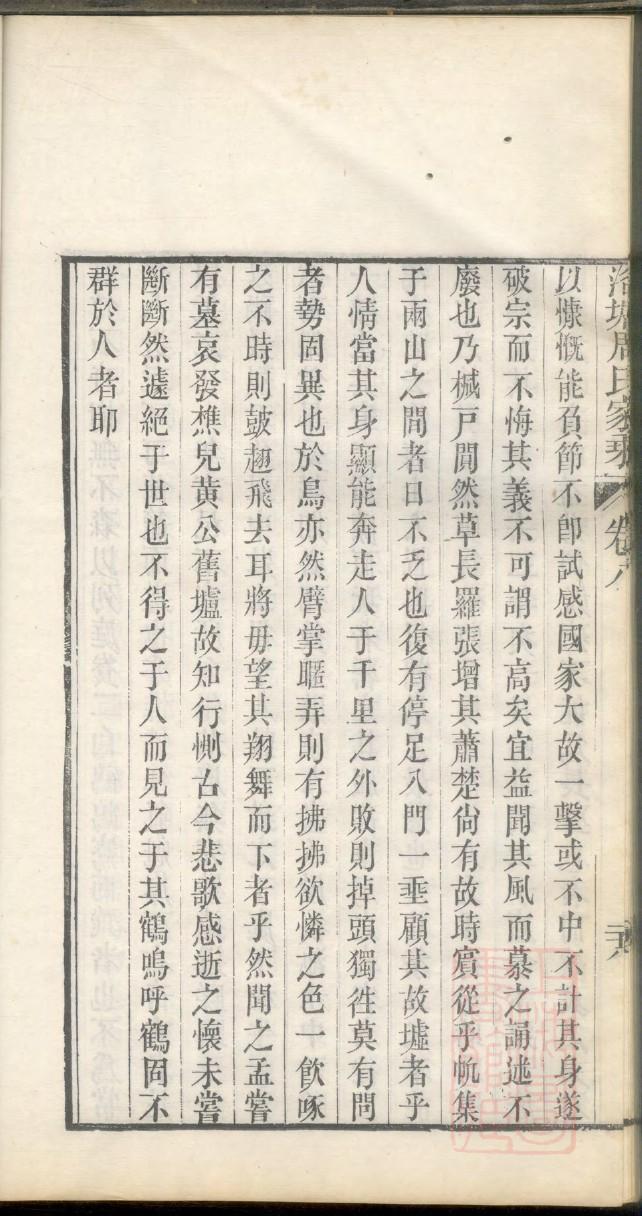 洛塘周氏家乘 卷八 二十八
以慷慨能負節不卽試感國家大故一擊或不中不計其身遂
破宗而不悔其義不可謂不高矣宜益聞其風而慕之誦述不
廢也乃楲戸閴然草長羅張增其蕭楚尙有故時賓從乎帆集
于兩山之間者日不乏也復有停足入門一埀顧其故墟者乎
人情當其身顯能奔走人于千里之外敗則掉頭獨徃莫有問
者勢固異也於鳥亦然臂掌暱弄則有拂拂欲憐之色一飮啄
之不時則鼓翅飛去耳將毋望其翔舞而下者乎然聞之孟嘗
有墓哀發樵兒黄公舊壚故知行惻古今悲歌感逝之懷未嘗
斷斷然遽絕于世也不得之于人而見之于其鶴嗚呼鶴固不
群於人者耶